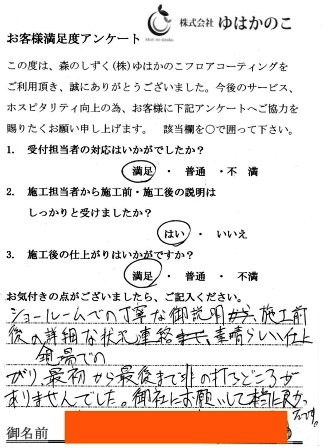 株式会社 ゆはかのこ
お客様満足度アンケート
この度は、森のしずく(株)ゆはかのこフロアコーティングを
ご利用頂き、誠にありがとうございました。今後のサービス、
ホスピタリティ向上の為、お客様に下記アンケートへご協力を
賜りたくお願い申し上げます。 該当欄を○で囲って下さい。
1. 受付担当者の対応はいかがでしたか?
満足 ・ 普通 ・不 満
2. 施工担当者から施工前・施工後の説明は
しっかりと受けましたか?
はい ・ いいえ
3. 施工後の仕上がりはいかがですか?
満足 ・ 普通 ・ 不 満
お気付きの点がございましたら、ご記入ください。
ショールームでの丁寧な御説明から、施工前
後の詳細な状況連絡まで、素晴らしい仕上
現場での
がり、最初から最後まで非の打ちどころが
ありませんでした。御社にお願いして本当に良かっ
たです。
御名前